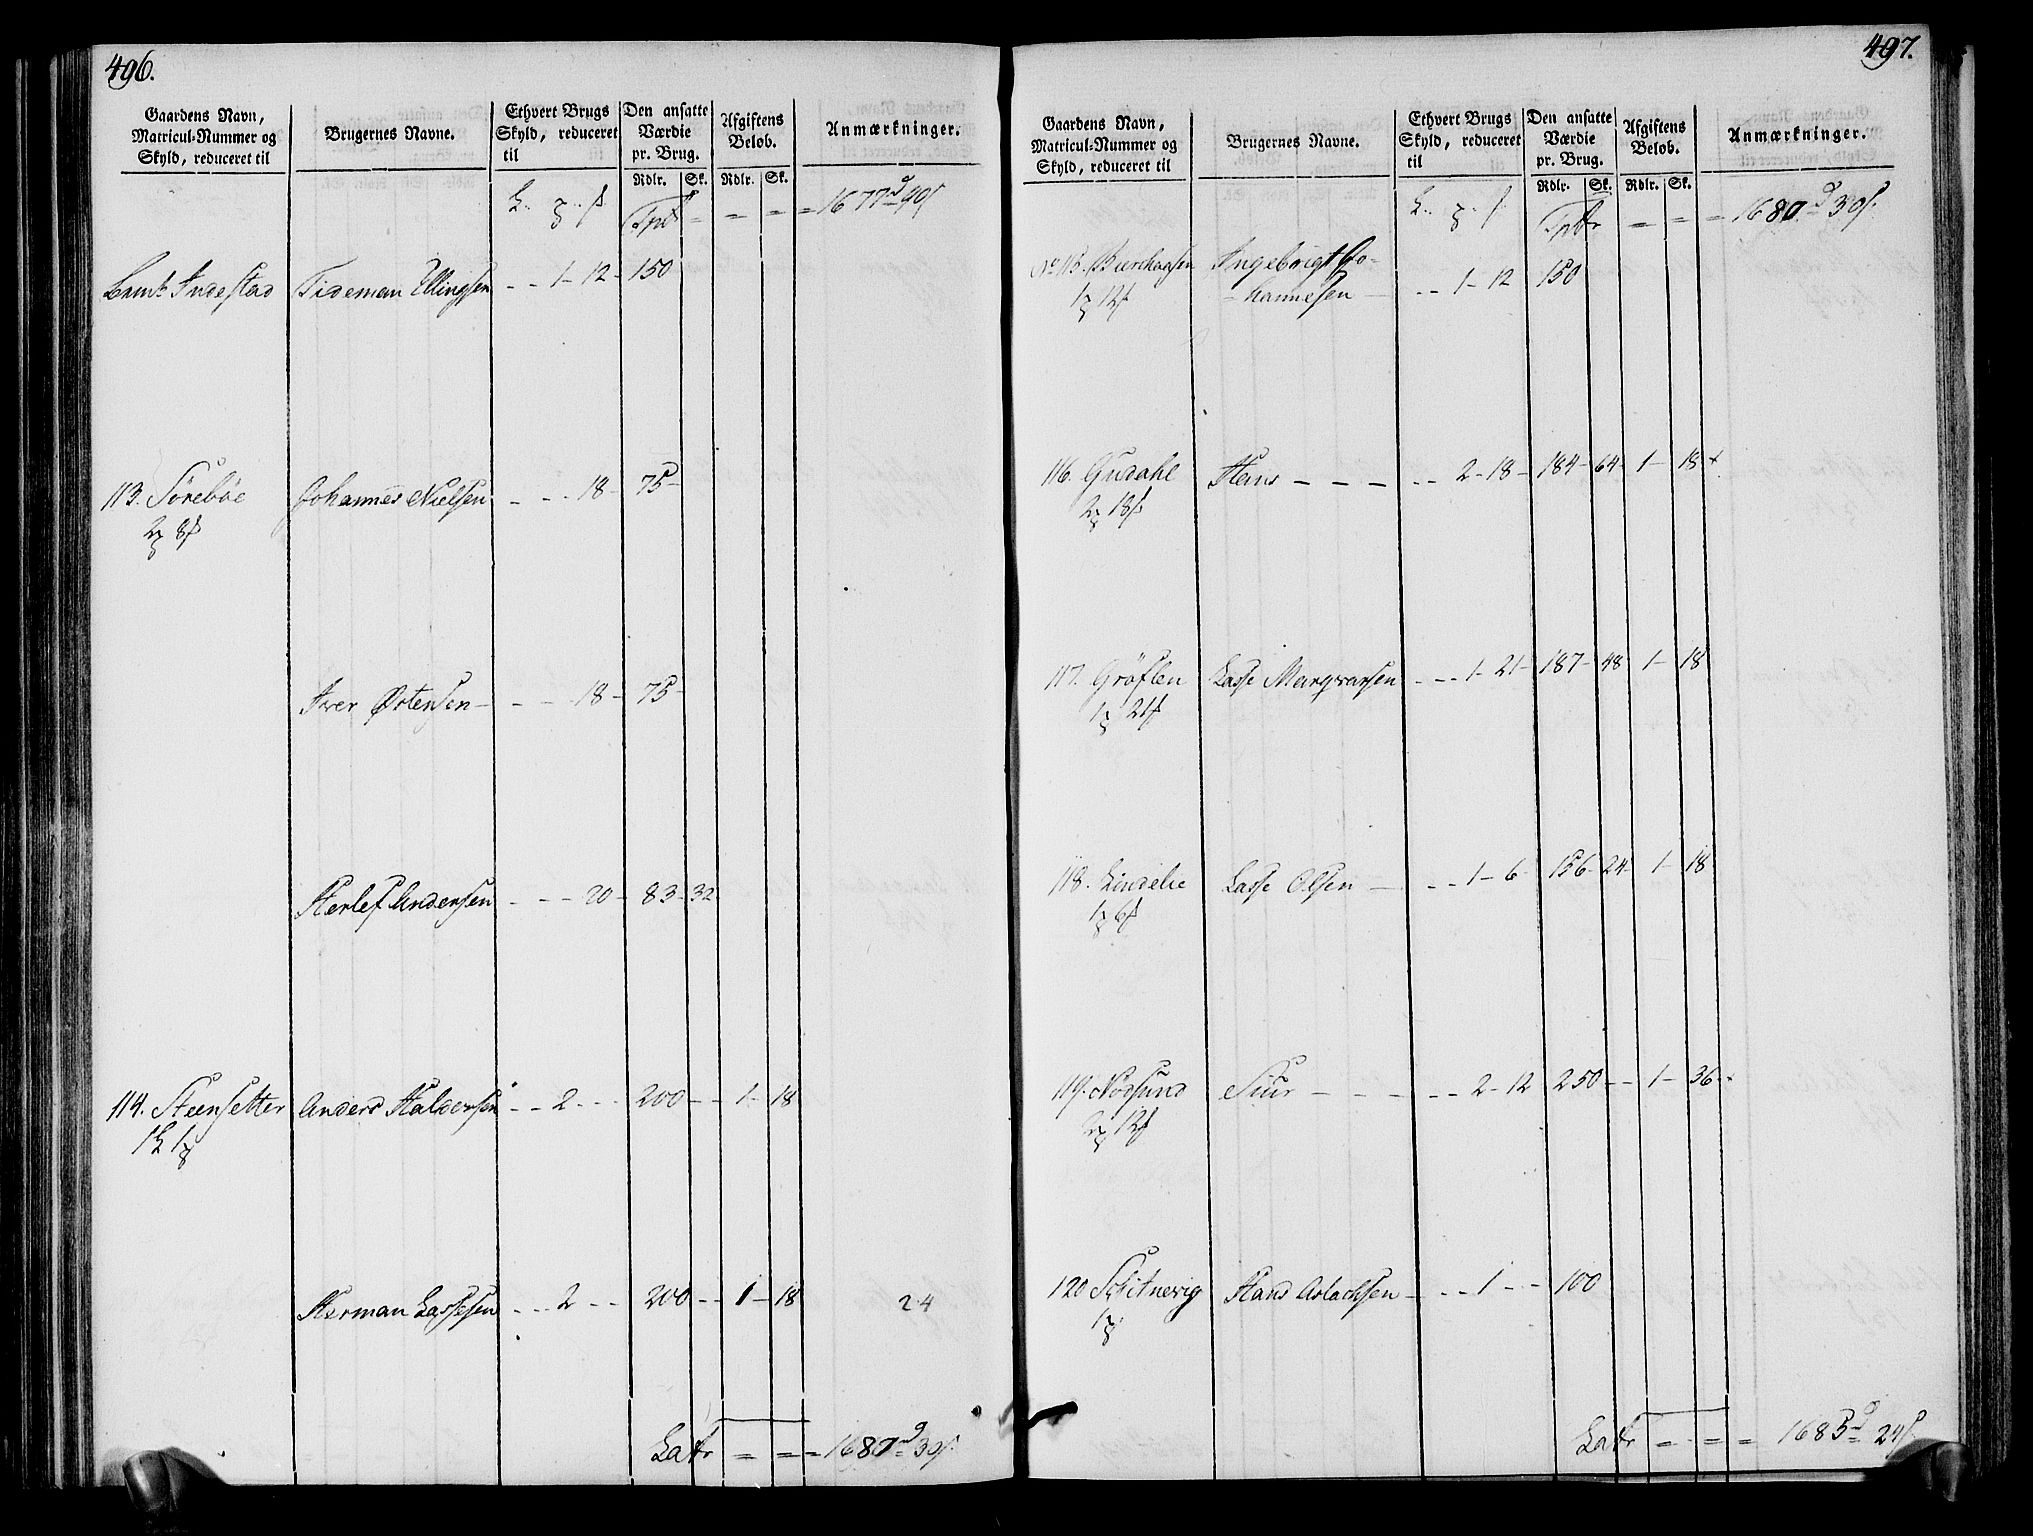 496.
Gaardens Navn, Matricul-Nummer og Skyld, reduceret til | Brugernes Navne. | Ethvert Brugs Skyld, reduceret til | Den ansatte Værdie pr. Brug. Rdlr. Sk. | Afgiftens Beløb. Rdlr. Sk. | Anmærkninger.
Tpt = = = = 1677 90
Indestad Tideman Ellingsen - - 1 - 12 - 150
113. Sörebøe Johannes Nielsen - - - 18 - 75 -
2 8
Iver Østensen - - - - 18 - 75 -
Herlef Andersen - - - 20 - 83 - 32
114. Steensetter Anders Haldorsen - - 2 - - - 200 - - 1 - 18
1 1
Herman Lassesen - - - 2 - - - 200 - - 1 - 18
24
Latr = = = 1680 30
497.
Gaardens Navn, Matricul-Nummer og Skyld, reduceret til | Brugernes Navne. | Ethvert Brugs Skyld, reduceret til | Den ansatte Værdie pr. Brug. Rdlr. Sk. | Afgiftens Beløb. Rdlr. Sk. | Anmærkninger.
Tptr = = = 1680 30
No 115. Ingebrigt Jo-
1 12 = hannesen - - - 1 - 12 150
116. Gudahl Hans - - - - - 2 - 18 - 184 - 64 1 - 18
2 18
117. Gröflen Lasse Marqvarsen - - - 1 - 21 - 187 - 48 1 - 18
1 21
118. Lindelie Lasse Olsen - - - 1 - 6 156 - 24 - 1 - 18
1 6
119. Nodsund Siur - - - - - 2 - 12 250 - - 1 - 36
2 12
120 Schitnevig Hans Aslachsen - - - 1 - - 100
1
Latr = = = 1683 24